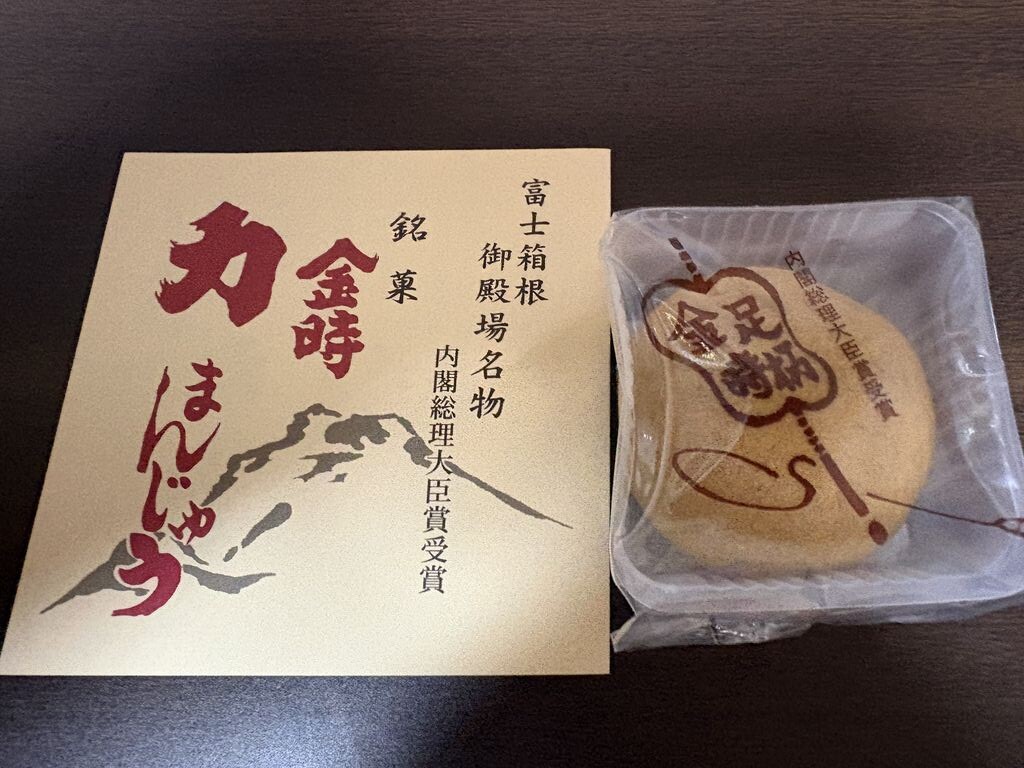 富士箱根
御殿場名物
内閣総理大臣賞受賞
銘菓
金時
力
まんじゅう
内閣総理大臣賞受賞
足柄
金時